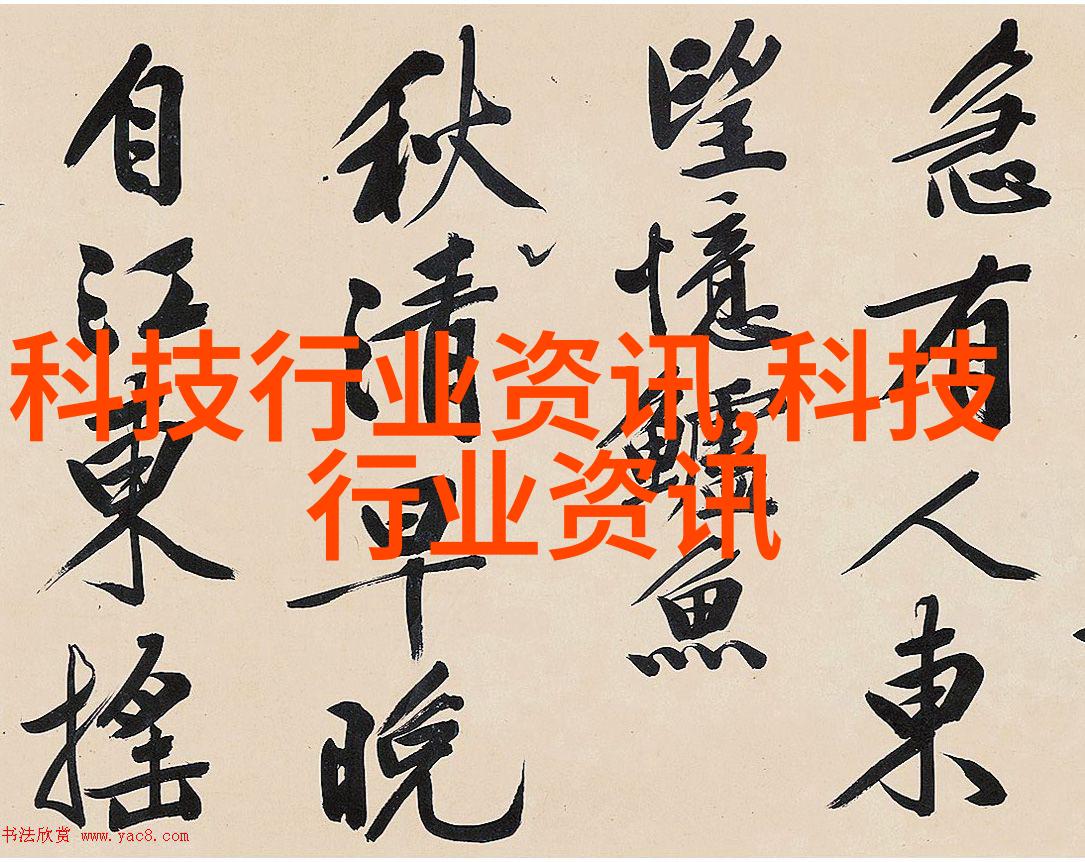 急有人東
望憶鱸魚
秋清早晚
自江東搖
科技行业资讯,科技
行业资讯
书法欣赏 www.yac8.com